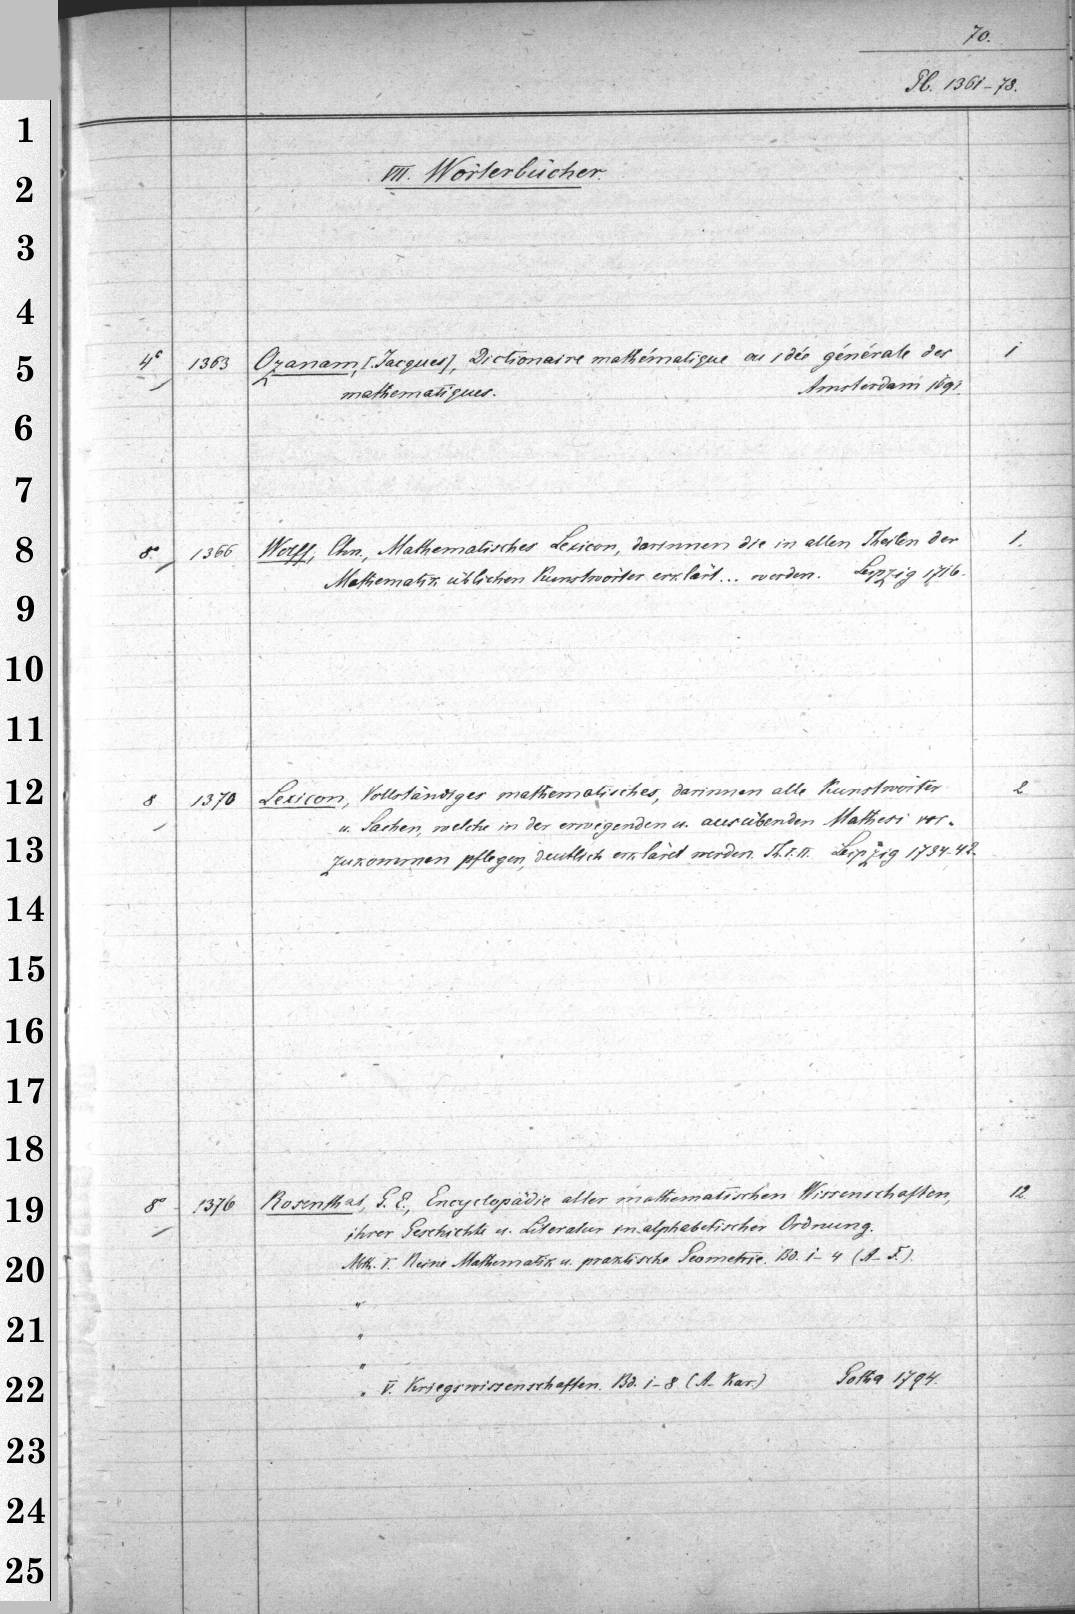 70.
Pb. 1361-78.
VIII. Wörterbücher.
4° 1363 Ozanam, [Jacques], Dictionaire mathématique ou idée générale des 1
mathematiques. Amsterdam 1691.
8° 1366 Wolff, Chn., Mathematisches Lexicon, darinnen die in allen Theilen der 1.
Mathematik üblichen Kunstwörter erklärt... werden. Leipzig 1716.
8 1370 Lexicon, Vollständiges mathematisches, darinnen alle Kunstwörter 2
u. Sachen, welche in der erwegenden u. ausübenden Mathesi vor-
zukommen pflegen, deutlich erkläret werden. Th. I. II. Leipzig 1734-42.
8° 1376 Rosenthal, G. E., Encyclopädie aller mathematischen Wissenschaften, 12
ihrer Geschichte u. Literatur in alphabetischer Ordnung.
Abth. I. Reine Mathematik u. praktische Geometrie. Bd. 1-4 (A-F.).
"
"
"
" V. Kriegswissenschaften. Bd. 1-8 (A-Kar.) Gotha 1794.
1
2
3
4
5
6
7
8
9
10
11
12
13
14
15
16
17
18
19
20
21
22
23
24
25